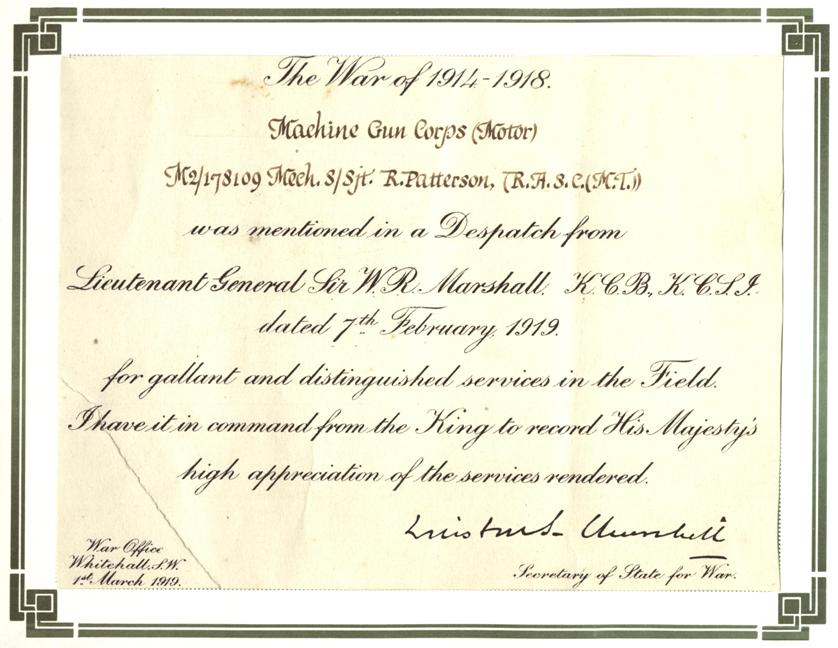 The War of 1914-1918.
Machine Gun Corps (Motor)
M2/178109 Mech. S/Sjt. R. Patterson, (R.A.S.C.(M.T.))
was mentioned in a Despatch from
Lieutenant General Sir W. R. Marshall, K.C.B., K.C.S.I.
dated 7th February, 1919.
for gallant and distinguished services in the Field.
I have it in command from the King to record His Majesty's
high appreciation of the services rendered.
Winston S. Churchill
War Office
Whitehall, S.W.
1st March 1919.
Secretary of State for War.